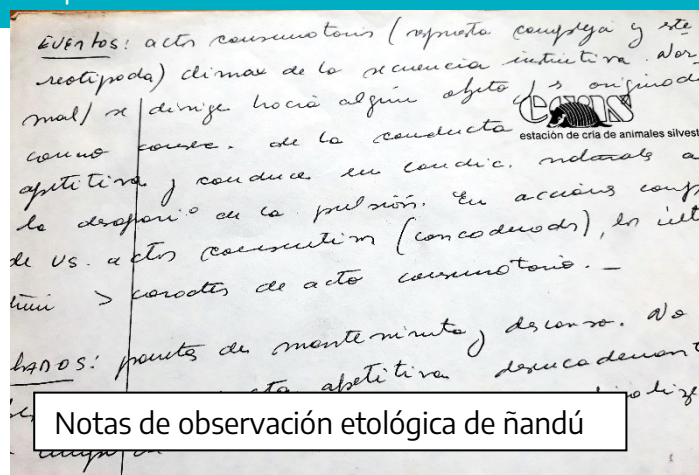 EVENTOS: acto consumatorio (respuesta compleja y este
reotipada) climax de la secuencia instintiva. Nor_
mal/ se dirige hacia algún objeto y s origina
como consec. de la conducta
ECAS
estación de cría de animales silvest
apetitiva y conduce en condic. naturals a
la desaparic de la pulsión. En accions comp
de vs. actos consecutivos (concadenads), los últ
> caracter de acto consumatorio. _
pautas de mantenimiento y descanso. No
apetitiva desencadenant
Notas de observación etológica de ñandú